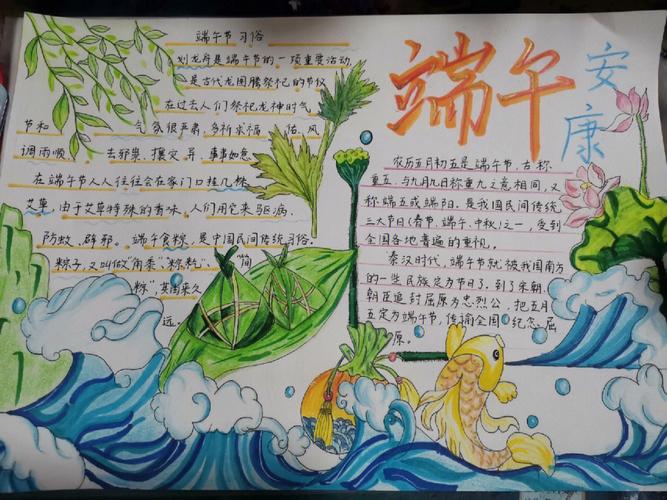 端午安康
端午节习俗
划龙舟是端午节的一项重要活动
是古代龙图腾祭祀的节仪
在过去人们祭祀龙神时气
节和 气氛很严肃，多祈求福 佑、风
调雨顺、去邪祟、攘灾异、事事如意
在端午节人人往往会在家门口挂几株
艾草，由于艾草特殊的香味，人们用它来驱病、
防蚊、辟邪。端午食粽，是中国民间传统习俗。
粽子，又叫做“角黍”“粽粒”、“筒
粽”，其由来久
远。
农历五月初五是端午节，古称
重五，与九月九日称重九之意相同，又
称端五或端阳，是我国民间传统
三大节日（春节、端午、中秋）之一，受到
全国各地普遍的重视。
秦汉时代，端午节就被我国南方
的一些民族定为节日了，到了宋朝，
朝臣追封屈原为忠烈公，把五月
五定为端午节，传谕全国 纪念 屈
原。